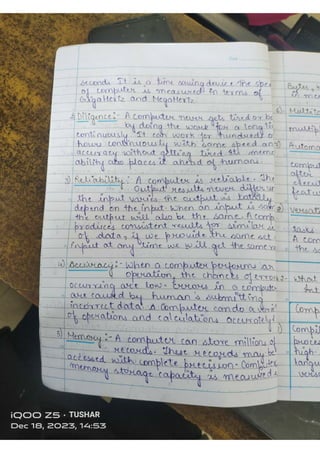 seconds It is a time saving device The spee
of computer is measured in terms of
GigaHertz and MegaHertz.
2) Diligence:- A computer never gets tired or bo
by doing the work for a long ti
continuously It can work for hundreds o
hours continuously with same speed and
accuracy without getting tired. Its
ability also places it ahead of humans.
3) Reliability:- A computer is reliable. The
Output results never differ un
the input varies the output is totally
depend on the input. when an input is sam
the output will also be the same. A comp
produces consistent results for similar se
of data, if we provide the same set
input at any time we will get the same r
4) Accuracy:- When a computer performs an
operation, the chances of error
occurring are low. Errors in a compute
are caused by human submitting
incorrect data. A Computer can do a
of operations and calculations accurately
5) Memory:- A computer can store millions of
records. These records may be
accessed with complete precision. Computer
memory storage capacity is measured i
Bytes,
6) Multita
multip
Automa
comput
after
7)
8) Versati
takes
A com
the sa
what
Comp
Compil
proces
high
langu
iQOO Z5 · TUSHAR
Dec 18, 2023, 14:53